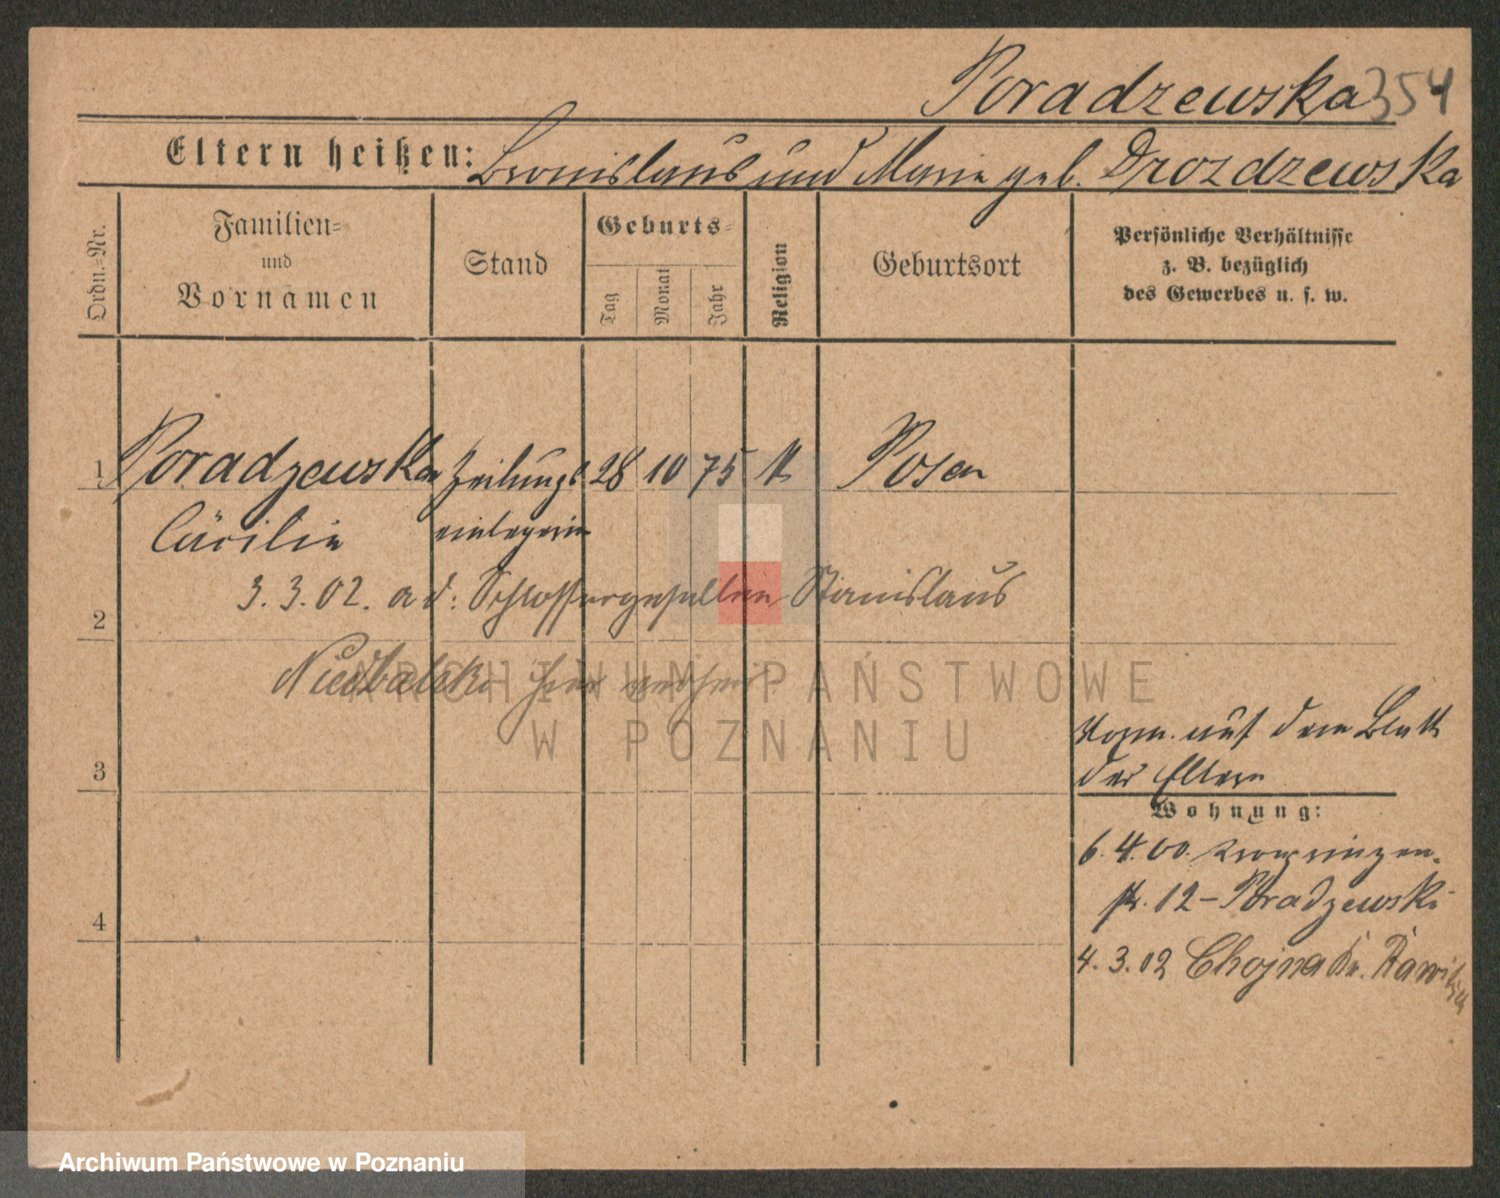 Poradzewska 354
Eltern heißen: Bronislaus und Marie geb. Drozdzewska
Ordn.-Nr.
Familien=
und
Vornamen
Stand
Geburts=
Tag
Monat
Jahr
Religion
Geburtsort
Persönliche Verhältnisse
z. B. bezüglich
des Gewerbes u. s. w.
1 Poradzewska Zeitungs 28 10 75 k Posen
Cäcilie einlegerin
3.3.02. a d: Schlossergesellen Stanislaus
2
Niedbalski hier verheir
ARCHIWUM PAŃSTWOWE
W POZNANIU
Vorm. auf dem Blatt
der Eltern
3
Wohnung:
6.4.00. Kronprinzen-
str. 12 - Poradzewski
4
4.3.02 Chojna Kr. Rawitsch
Archiwum Państwowe w Poznaniu